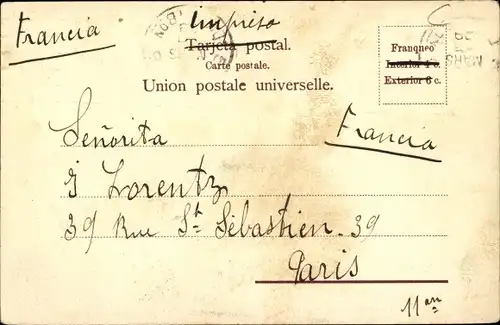 Francia
Impreso
Tarjeta postal.
Carte postale.
Union postale universelle.
Franqueo
Interior 4 c.
Exterior 6 c.
MARS
Francia
Señorita
J Lorentz
39 Rue St Sébastien. 39
Paris
11